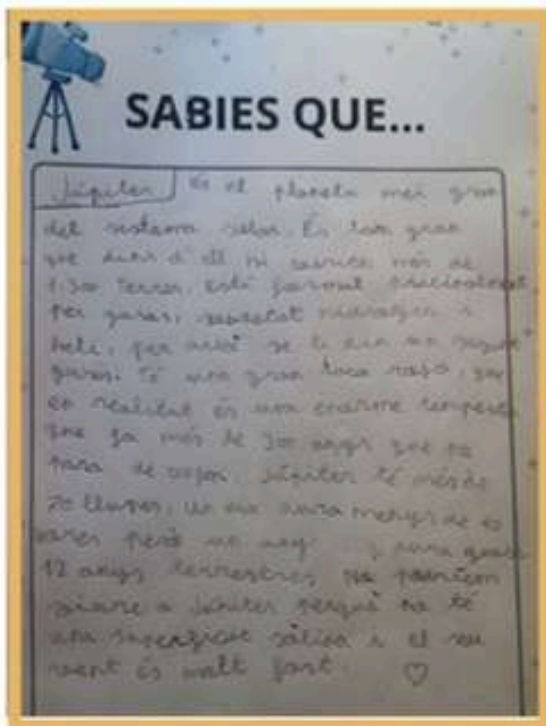 SABIES QUE...
Júpiter és el planeta més gran
del sistema solar. És tan gran
que dins d'ell hi més de
1.300 Terres. Està format principalment
per gasos, hidrogen i
heli, per això se li diu
gasós. Té una gran taca roja, que
en realitat és una enorme tempesta
que fa més de 300 anys que no
para de Júpiter té més de
70 llunes, un dia dura menys de 10
ores però un any dura quasi
12 anys terrestres. No podríem
viure a Júpiter perquè no té
una superfície sòlida i el seu
vent és molt fort. ♡